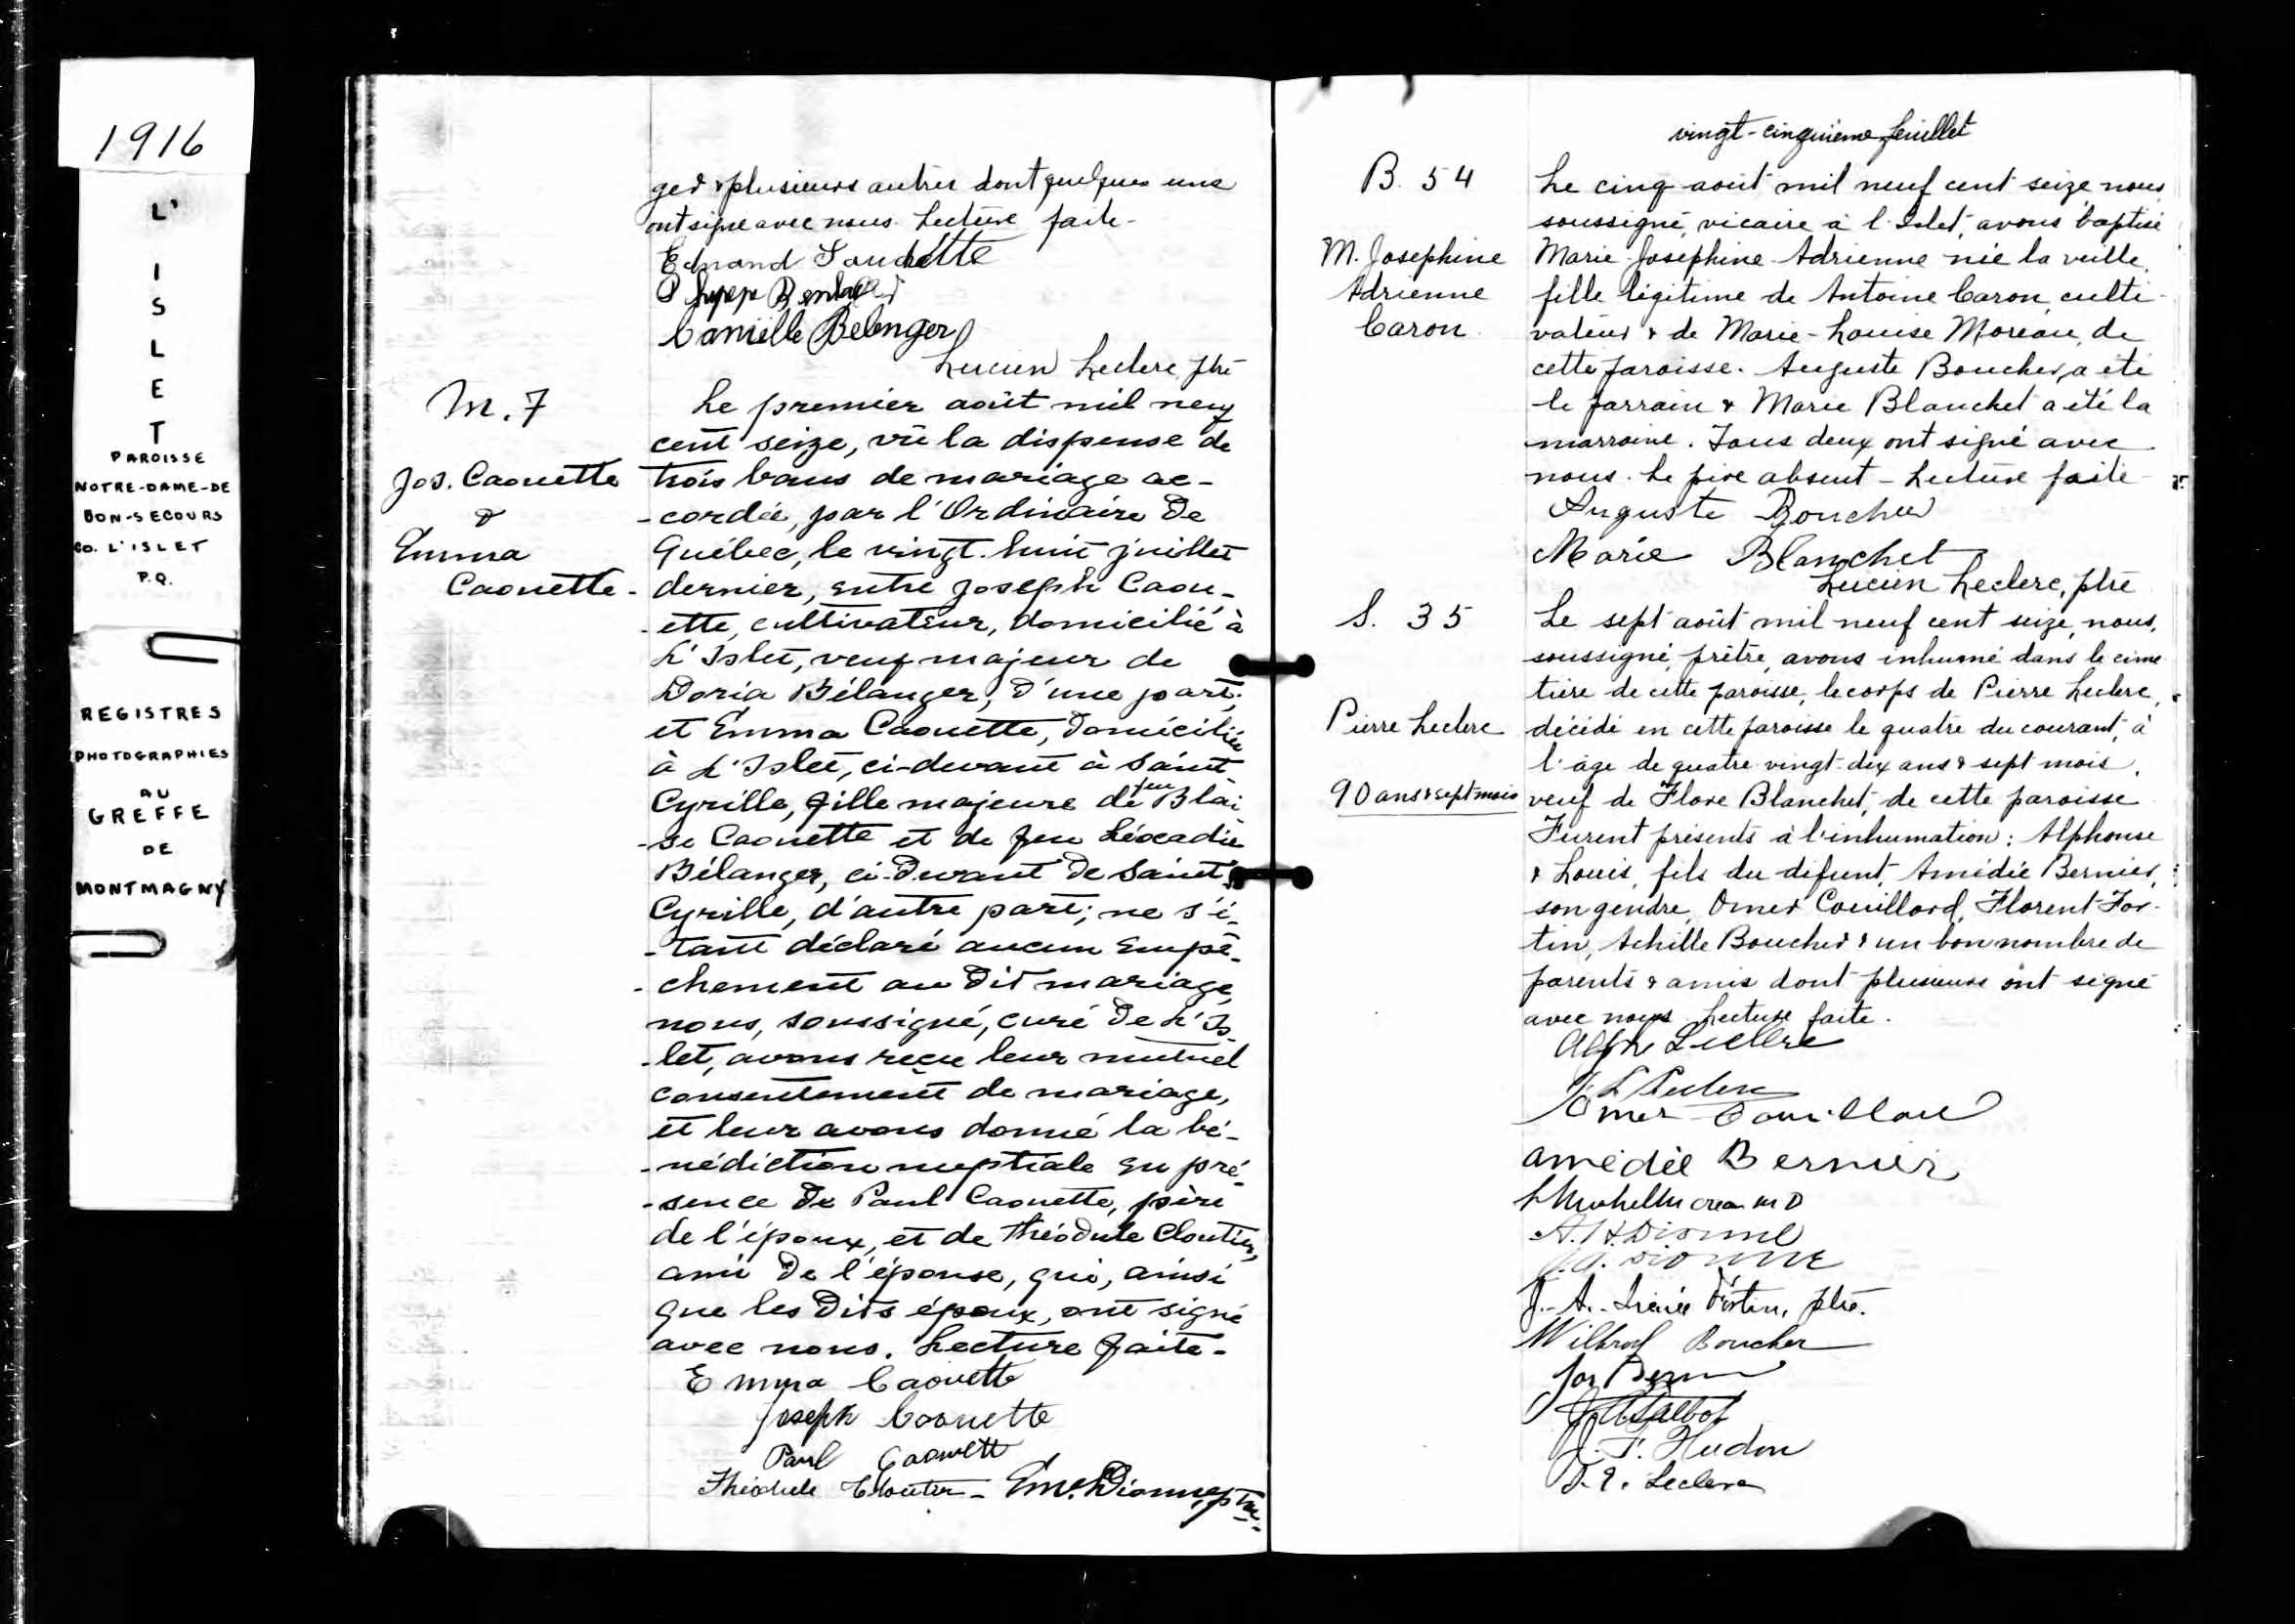 1916
L'
I
S
L
E
T
PAROISSE
NOTRE-DAME-DE
BON-SECOURS
CO. L'ISLET
P.Q.
REGISTRES
PHOTOGRAPHIES
AU
GREFFE
DE
MONTMAGNY
ger & plusieurs autres dont quelques uns
ont signé avec nous. Lecture faite-
Camille Belenger
Lucien Leclerc, ptre
M. 7
Jos. Caouette
&
Emma
Caouette-
Le premier août mil neuf
cent seize, vû la dispense de
trois bans de mariage ac-
-cordée, par l'Ordinaire de
Québec, le vingt-huit juillet
dernier, entre Joseph Caou-
-ette, cultivateur, domicilié à
L'Islet, veuf majeur de
Doria Bélanger, d'une part;
et Emma Caouette, domiciliée
à L'Islet, ci-devant à Saint-
Cyrille, fille majeure de feu Blai-
-se Caouette et de feu Léocadie
Bélanger, ci-devant de Saint-
Cyrille, d'autre part; ne s'é-
-tant déclaré aucun empê-
-chement au dit mariage,
nous, soussigné, curé de L'Is-
-let, avons reçu leur mutuel
consentement de mariage,
et leur avons donné la bé-
-nédiction nuptiale en pré-
-sence de Paul Caouette, père
de l'époux, et de Théodule Cloutier,
ami de l'épouse, qui, ainsi
que les dits époux, ont signé
avec nous. Lecture faite-
Emma Caouette
Joseph Caouette
Paul Caouett
Théodule Cloutier- Em. Dionne, ptre.-
vingt-cinquième feuillet
B. 54
M. Josephine
Adrienne
Caron.
Le cinq août mil neuf cent seize, nous
soussigné, vicaire à l'Islet, avons baptisé
Marie-Josephine-Adrienne née la veille,
fille légitime de Antoine Caron, culti-
vateur & de Marie-Louise Moreau, de
cette paroisse. Auguste Boucher, a été
le parrain & Marie Blanchet a été la
marraine. Tous deux ont signé avec
nous. Le père absent - Lecture faite-
Auguste Boucher
Marie Blanchet
Lucien Leclerc, ptre
S. 35
Pierre Leclerc
90 ans & sept mois
Le sept août mil neuf cent seize, nous,
soussigné, prêtre, avons inhumé dans le cime-
tière de cette paroisse, le corps de Pierre Leclerc,
décédé en cette paroisse le quatre du courant, à
l'âge de quatre vingt-dix ans & sept mois,
veuf de Flore Blanchet, de cette paroisse
Furent présents à l'inhumation: Alphonse
& Louis, fils du défunt, Amédée Bernier,
son gendre, Omer Couillard, Florent For-
tin, Achille Boucher & un bon nombre de
parents & amis dont plusieurs ont signé
avec nous. Lecture faite.
Alph Leclerc
Leclerc
Omer Couillard
Amédée Bernier
A. H. Dionne
Dionne
J.-A.-Irénée Fortin, ptre.
Wilbrod Boucher
Talbot
J. F. Hudon
Leclerc